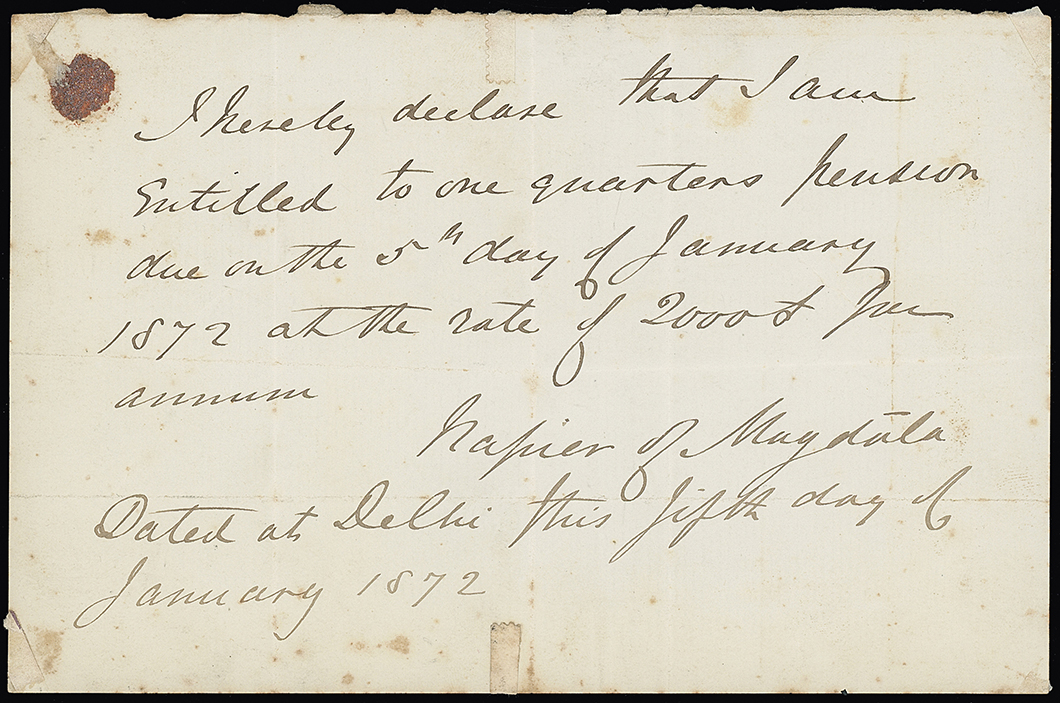 I hereby declare that I am
Entitled to one quarters pension
due on the 5th day of January
1872 at the rate of 2000£ per
annum
Napier of Magdāla
Dated at Delhi this fifth day of
January 1872